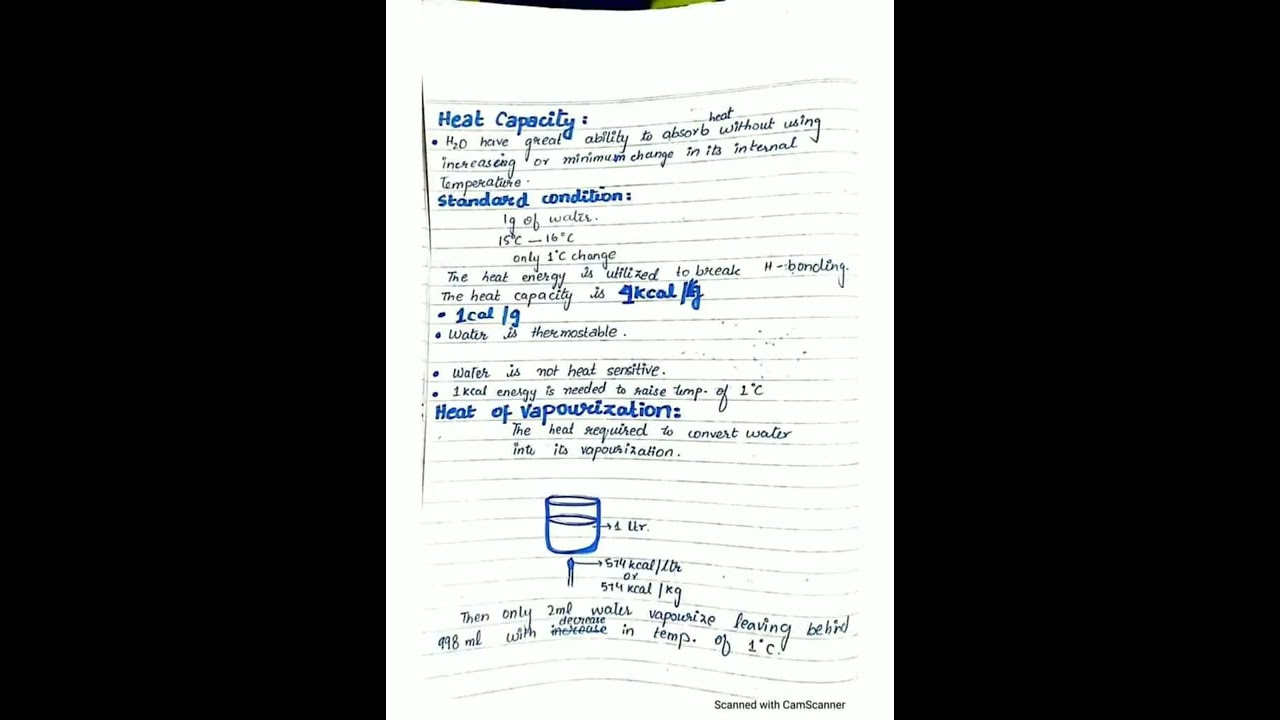 Heat Capacity:
heat
• H₂O have great ability to absorb without using
increasing or minimum change in its internal
temperature.
Standard condition:
1g of water.
15°C — 16°C
only 1°C change
The heat energy is utilized to break H-bonding.
The heat capacity is 1kcal/kg
• 1cal/g
• Water is thermostable.
• Water is not heat sensitive.
• 1kcal energy is needed to raise temp. of 1°C
Heat of Vapourization:
The heat required to convert water
into its vapourization.
→ 1 ltr.
→ 574 kcal/ltr
or
574 kcal/kg
Then only 2ml water vapourize leaving behind
decrease
998 ml with increase in temp. of 1°C.
Scanned with CamScanner